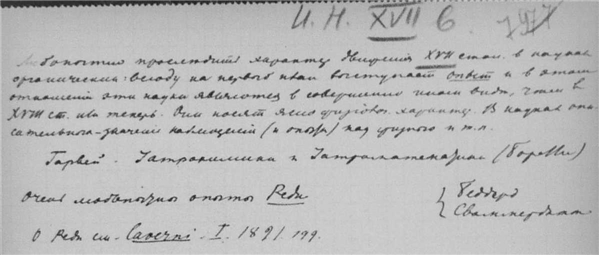 И. Н. XVII 6.
Любопытно проследить характер движения XVII стол. в науках
органических: всюду на первый план выступает опыт и в этом
отношении эти науки являются в совершенно ином виде, чем в
XVIII ст. или теперь. Они носят ясно характер. В науках опи-
сательного значение наблюдений (и опыта) над и т. п.
Гарвей - Iатрохимики и Iатроматематики (Борелли)
Очень любопытны опыты Реди
Сваммердам
О Реди см. I. 1891. 199.